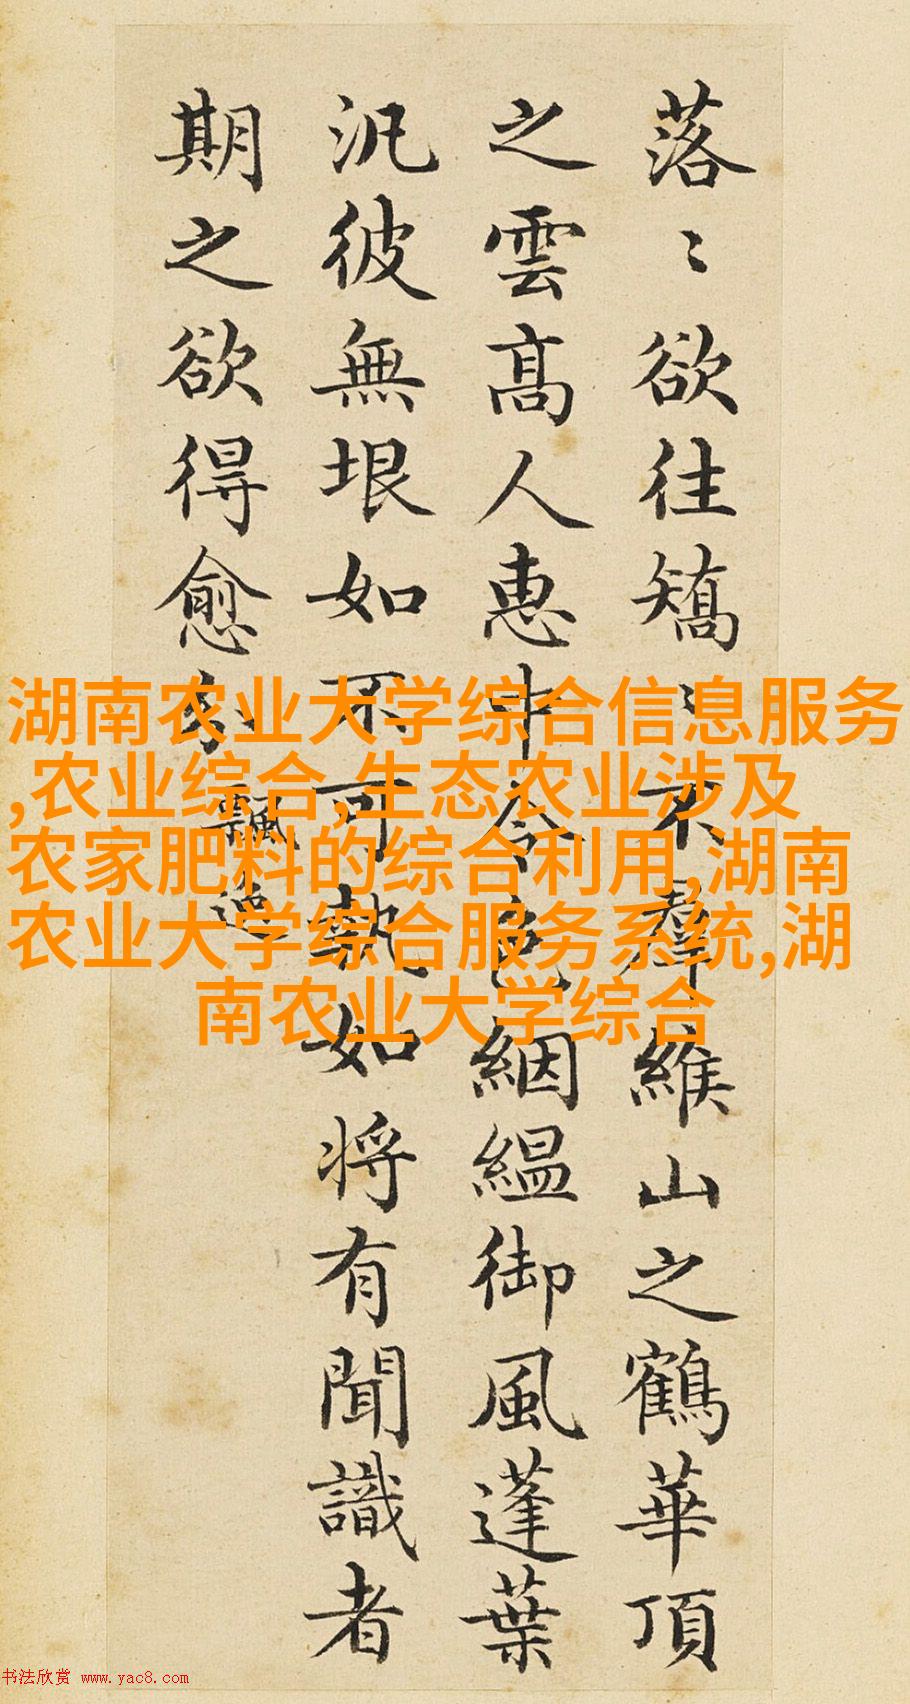 落〻欲往矯〻不羣緱山之鶴華頂
之雲高人惠中令色絪緼御風蓬葉
汎彼無垠如不可執如将有聞識者
期之欲得愈分
飄逸
湖南农业大学综合信息服务
,农业综合,生态农业涉及
农家肥料的综合利用,湖南
农业大学综合服务系统,湖
南农业大学综合
书法欣赏 www.yac8.com